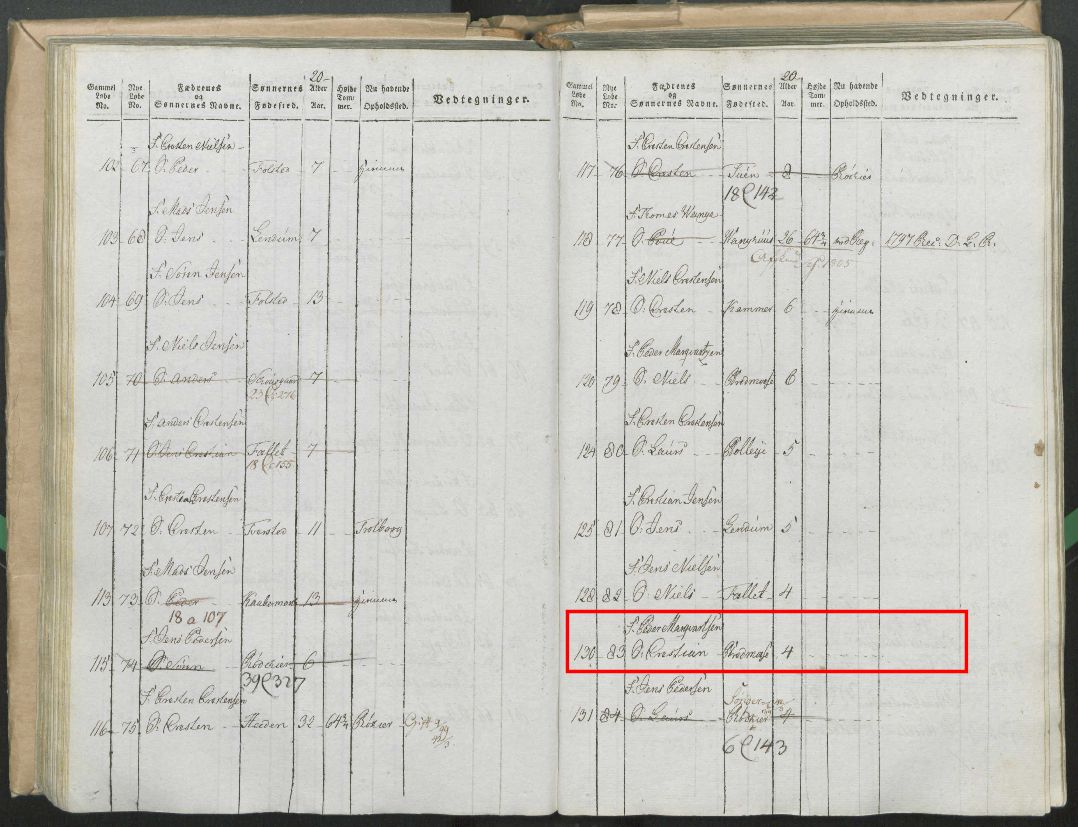 20
Gammel Løbe No. Nye Løbe No. Fædrenes og Sønnernes Navne. Sønnernes Fødested. Alder Aar. Høide Tommer. Nu havende Opholdssted. Vedtegninger.
F. Cresten Nielsen
102 67 S. Peder Tolstod 7 hiemme
F. Mads Jensen
103 68 S. Jens Lendum 7
F. Sørin Jensen
104 69 S. Jens Tolstod 13
F. Niels Jensen
105 70 S. Anders 7
23 C 276
F. Anders Crestensen
106 71 S. Jens Crestian Fallet 7
18 C 155
F. Cresten Crestensen
107 72 S. Cresten Tverstod 11 Trolborg
F. Mads Jensen
113 73 S. Peder 13 hiemme
18 a 107
F. Jens Pedersen
115 74 S. Sørin 6
39 C 327
F. Cresten Crestensen
116 75 S. Cresten Heeden 32 64¾
20
Gammel Løbe No. Nye Løbe No. Fædrenes og Sønnernes Navne. Sønnernes Fødested. Alder Aar. Høide Tommer. Nu havende Opholdssted. Vedtegninger.
F. Cresten Crestensen
117 76 S. Cresten Tuen 8
18 C 142
F. Thomas Wanga
118 77 S. Poul 26 64¾ 1797 Rec: D. L. R.
1805
F. Niels Crestensen
119 78 S. Cresten Kammer 6 hiemme
F. Peder Marqvartsen
120 79 S. Niels Brødmose 6
F. Cresten Crestensen
124 80 S. Laurs 5
F. Crestian Jensen
125 81 S. Jens Lendum 5
F. Jens Nielsen
128 82 S. Niels Fallet 4
F. Peder Marqvartsen
130 83 S. Crestian Brødmose 4
F. Jens Pedersen
131 84 S. Laurs 4
6 C 143